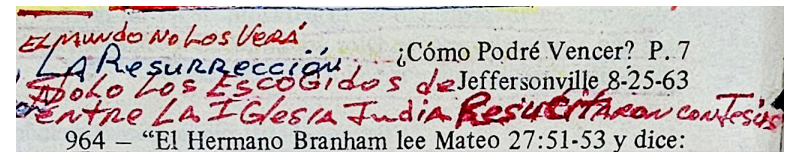 EL MUNDO NO LOS VERÁ
LA RESURRECCIÓN. ¿Cómo Podré Vencer? P. 7
SOLO LOS ESCOGIDOS de Jeffersonville 8-25-63
entre LA IGLESIA Judia Resucitaron con Jesús
964 — “El Hermano Branham lee Mateo 27:51-53 y dice: